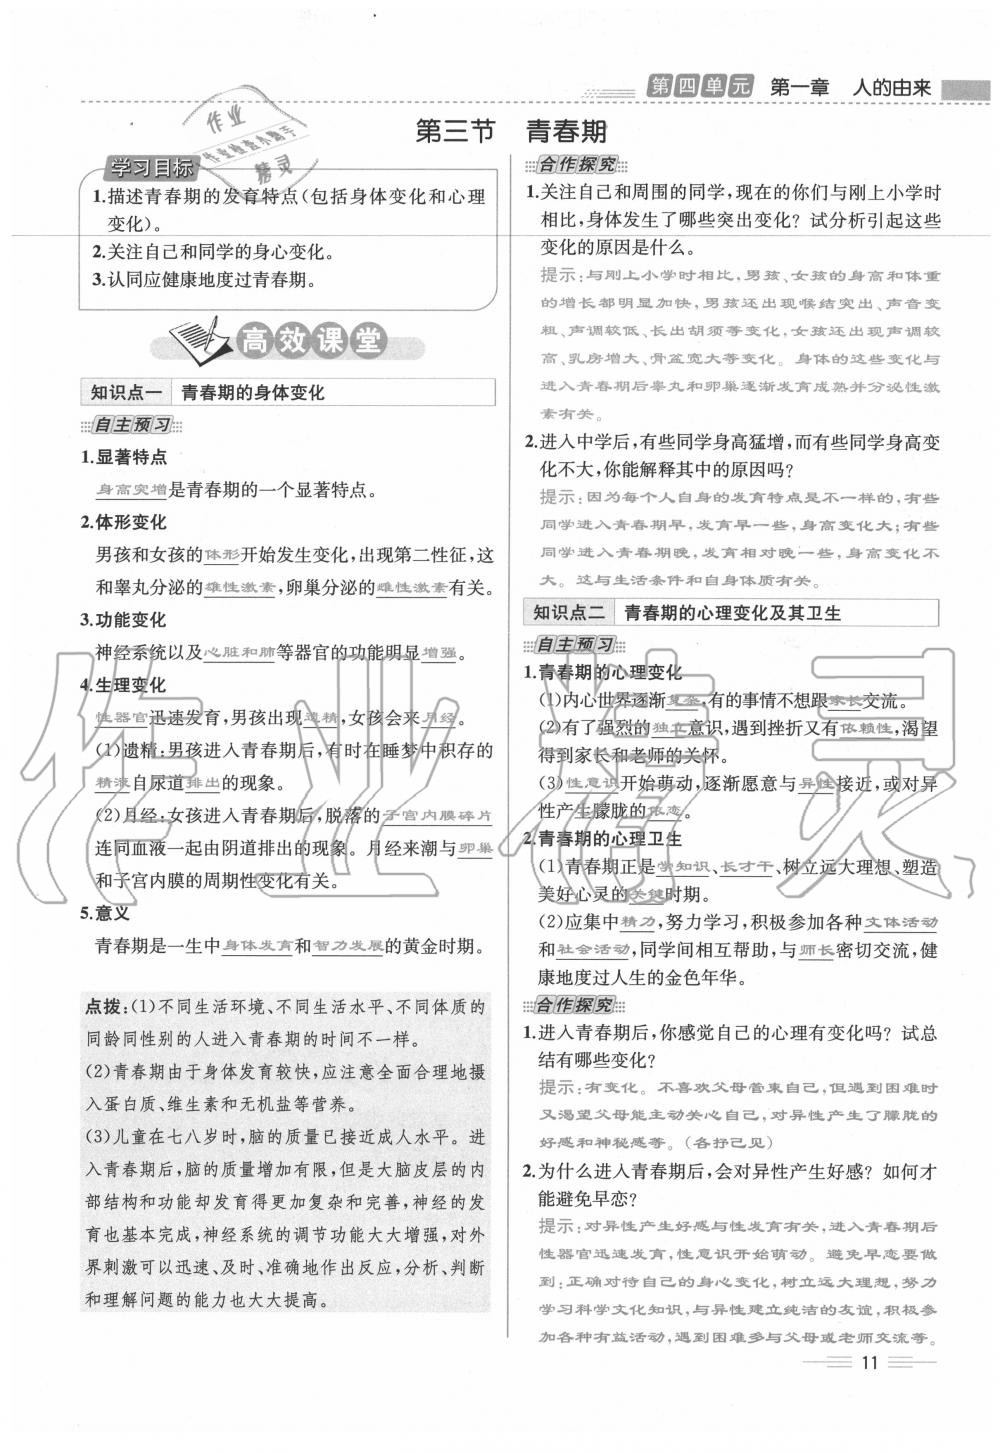 第四单元 第一章 人的由来
第三节 青春期
学习目标
1.描述青春期的发育特点(包括身体变化和心理
变化)。
2.关注自己和同学的身心变化。
3.认同应健康地度过青春期。
高效课堂
知识点一 青春期的身体变化
自主预习
1.显著特点
身高突增是青春期的一个显著特点。
2.体形变化
男孩和女孩的体形开始发生变化,出现第二性征,这
和睾丸分泌的雄性激素,卵巢分泌的雌性激素有关。
3.功能变化
神经系统以及心脏和肺等器官的功能明显增强。
4.生理变化
性器官迅速发育,男孩出现遗精,女孩会来月经。
(1)遗精:男孩进入青春期后,有时在睡梦中积存的
精液自尿道排出的现象。
(2)月经:女孩进入青春期后,脱落的子宫内膜碎片
连同血液一起由阴道排出的现象。月经来潮与卵巢
和子宫内膜的周期性变化有关。
5.意义
青春期是一生中身体发育和智力发展的黄金时期。
点拨:(1)不同生活环境、不同生活水平、不同体质的
同龄同性别的人进入青春期的时间不一样。
(2)青春期由于身体发育较快,应注意全面合理地摄
入蛋白质、维生素和无机盐等营养。
(3)儿童在七八岁时,脑的质量已接近成人水平。进
入青春期后,脑的质量增加有限,但是大脑皮层的内
部结构和功能却发育得更加复杂和完善,神经的发
育也基本完成,神经系统的调节功能大大增强,对外
界刺激可以迅速、及时、准确地作出反应,分析、判断
和理解问题的能力也大大提高。
合作探究
1.关注自己和周围的同学,现在的你们与刚上小学时
相比,身体发生了哪些突出变化?试分析引起这些
变化的原因是什么。
提示:与刚上小学时相比,男孩、女孩的身高和体重
的增长都明显加快,男孩还出现喉结突出、声音变
粗、声调较低、长出胡须等变化,女孩还出现声调较
高、乳房增大、骨盆宽大等变化。身体的这些变化与
进入青春期后睾丸和卵巢逐渐发育成熟并分泌性激
素有关。
2.进入中学后,有些同学身高猛增,而有些同学身高变
化不大,你能解释其中的原因吗?
提示:因为每个人自身的发育特点是不一样的,有些
同学进入青春期早,发育早一些,身高变化大;有些
同学进入青春期晚,发育相对晚一些,身高变化不
大。这与生活条件和自身体质有关。
知识点二 青春期的心理变化及其卫生
自主预习
1.青春期的心理变化
(1)内心世界逐渐复杂,有的事情不想跟家长交流。
(2)有了强烈的独立意识,遇到挫折又有依赖性,渴望
得到家长和老师的关怀。
(3)性意识开始萌动,逐渐愿意与异性接近,或对异
性产生朦胧的依恋。
2.青春期的心理卫生
(1)青春期正是学知识、长才干、树立远大理想、塑造
美好心灵的关键时期。
(2)应集中精力,努力学习,积极参加各种文体活动
和社会活动,同学间相互帮助,与师长密切交流,健
康地度过人生的金色年华。
合作探究
1.进入青春期后,你感觉自己的心理有变化吗?试总
结有哪些变化?
提示:有变化。不喜欢父母管束自己,但遇到困难时
又渴望父母能主动关心自己,对异性产生了朦胧的
好感和神秘感等。(各抒己见)
2.为什么进入青春期后,会对异性产生好感?如何才
能避免早恋?
提示:对异性产生好感与性发育有关,进入青春期后
性器官迅速发育,性意识开始萌动。避免早恋要做
到:正确对待自己的身心变化,树立远大理想,努力
学习科学文化知识,与异性建立纯洁的友谊,积极参
加各种有益活动,遇到困难多与父母或老师交流等。
11
作业
作业检查小助手
精灵
作业精灵